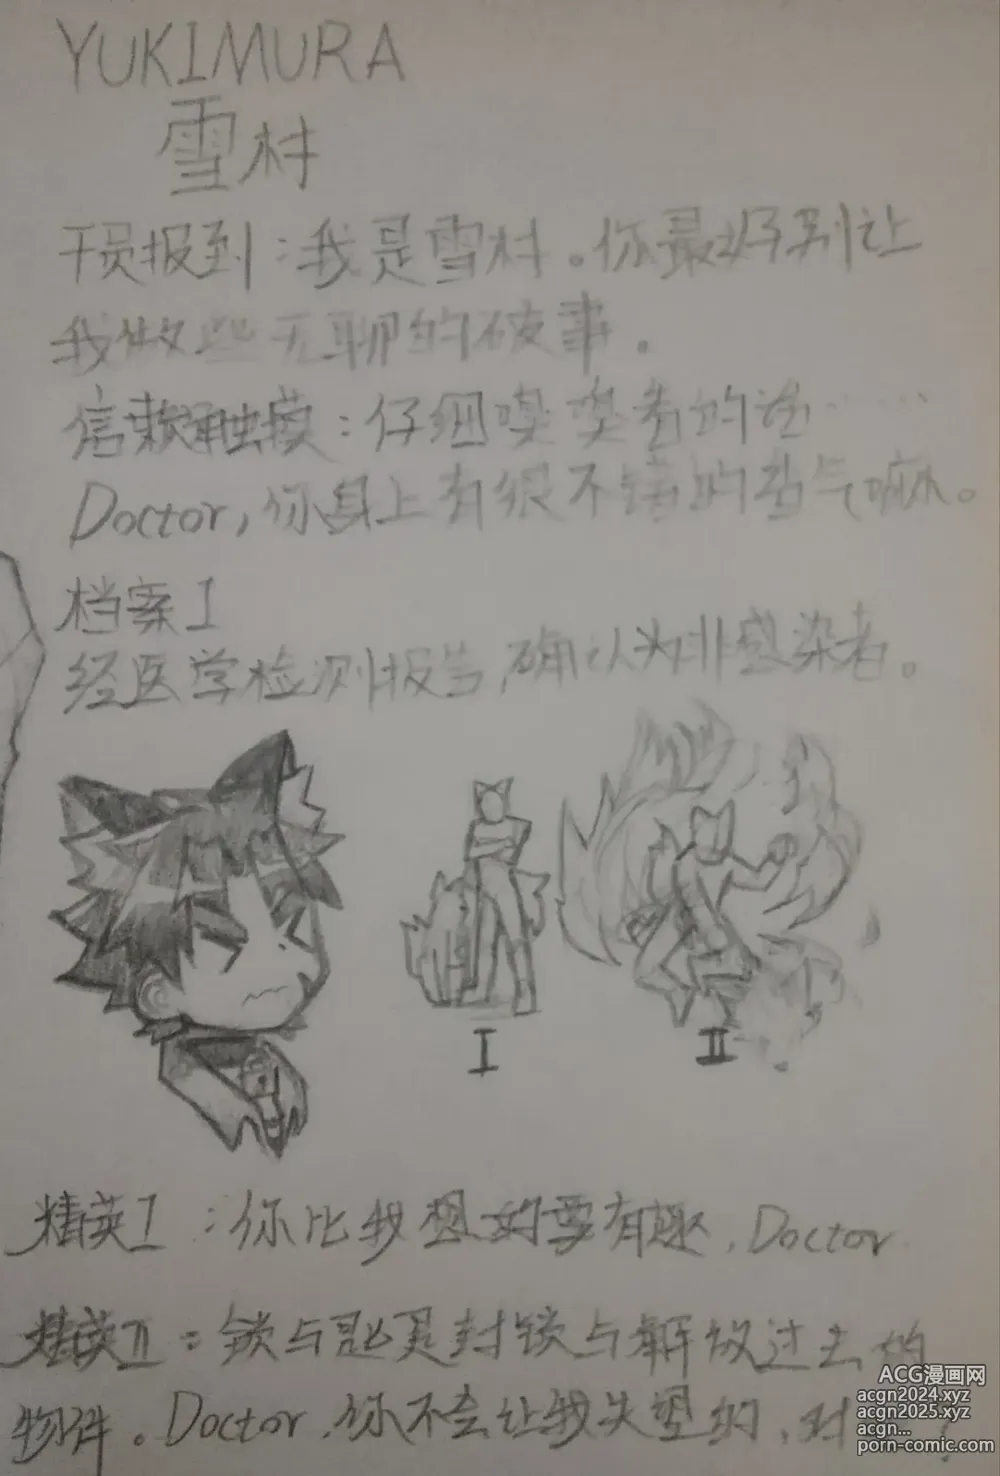 YUKIMURA
雪村
干员报到:我是雪村。你最好别让
我做些无聊的破事。
信赖触摸:仔细嗅嗅看的话……
Doctor,你身上有很不错的香气嘛。
档案I
经医学检测报告,确认为非感染者。
I
II
精英I:你比我想的要有趣,Doctor.
精英II:锁与匙是封锁与解放过去的
物件。Doctor,你不会让我失望的,对
ACG漫画网
acgn2024.xyz
acgn2025.xyz
acgn...
porn-comic.com